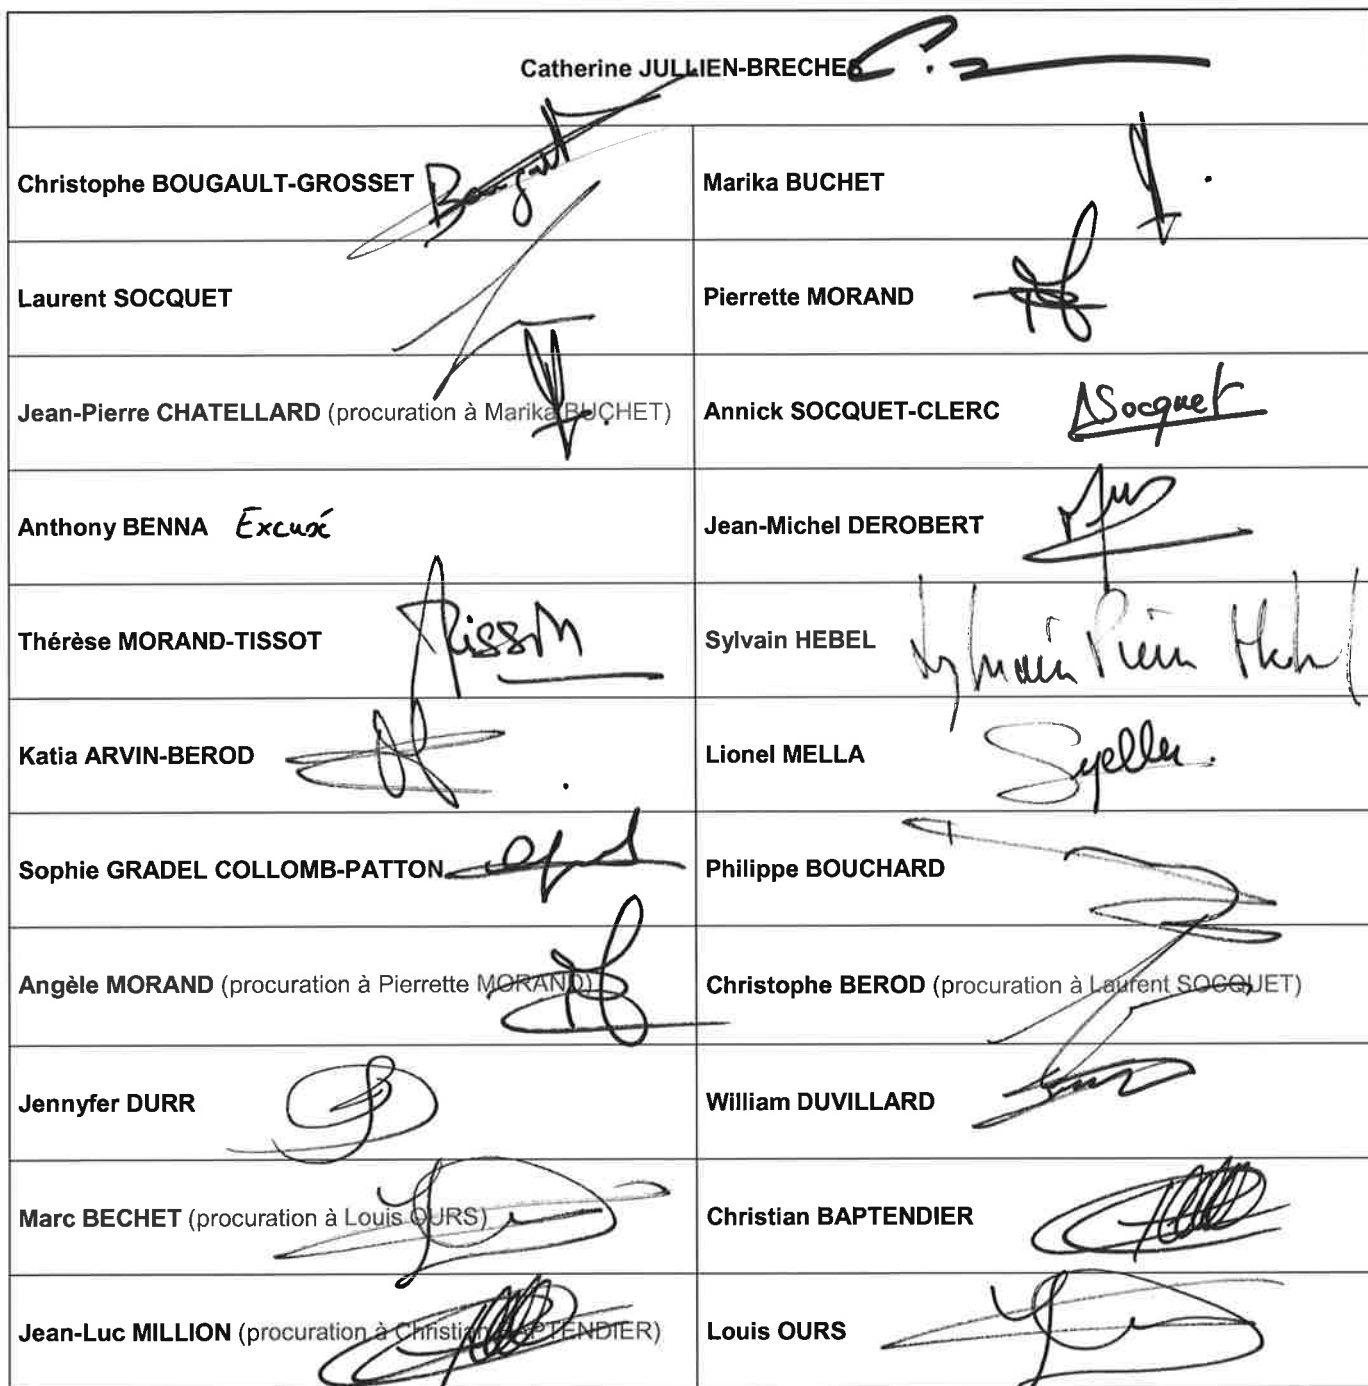 Catherine JULLIEN-BRECHES
Christophe BOUGAULT-GROSSET Bougault
Marika BUCHET
Laurent SOCQUET
Pierrette MORAND
Jean-Pierre CHATELLARD (procuration à Marika BUCHET)
Annick SOCQUET-CLERC ASocquet
Anthony BENNA Excusé
Jean-Michel DEROBERT
Thérèse MORAND-TISSOT
Sylvain HEBEL Sylvain Pierre Hebel
Katia ARVIN-BEROD
Lionel MELLA
Sophie GRADEL COLLOMB-PATTON
Philippe BOUCHARD
Angèle MORAND (procuration à Pierrette MORAND)
Christophe BEROD (procuration à Laurent SOCQUET)
Jennyfer DURR
William DUVILLARD
Marc BECHET (procuration à Louis OURS)
Christian BAPTENDIER
Jean-Luc MILLION (procuration à Christian BAPTENDIER)
Louis OURS